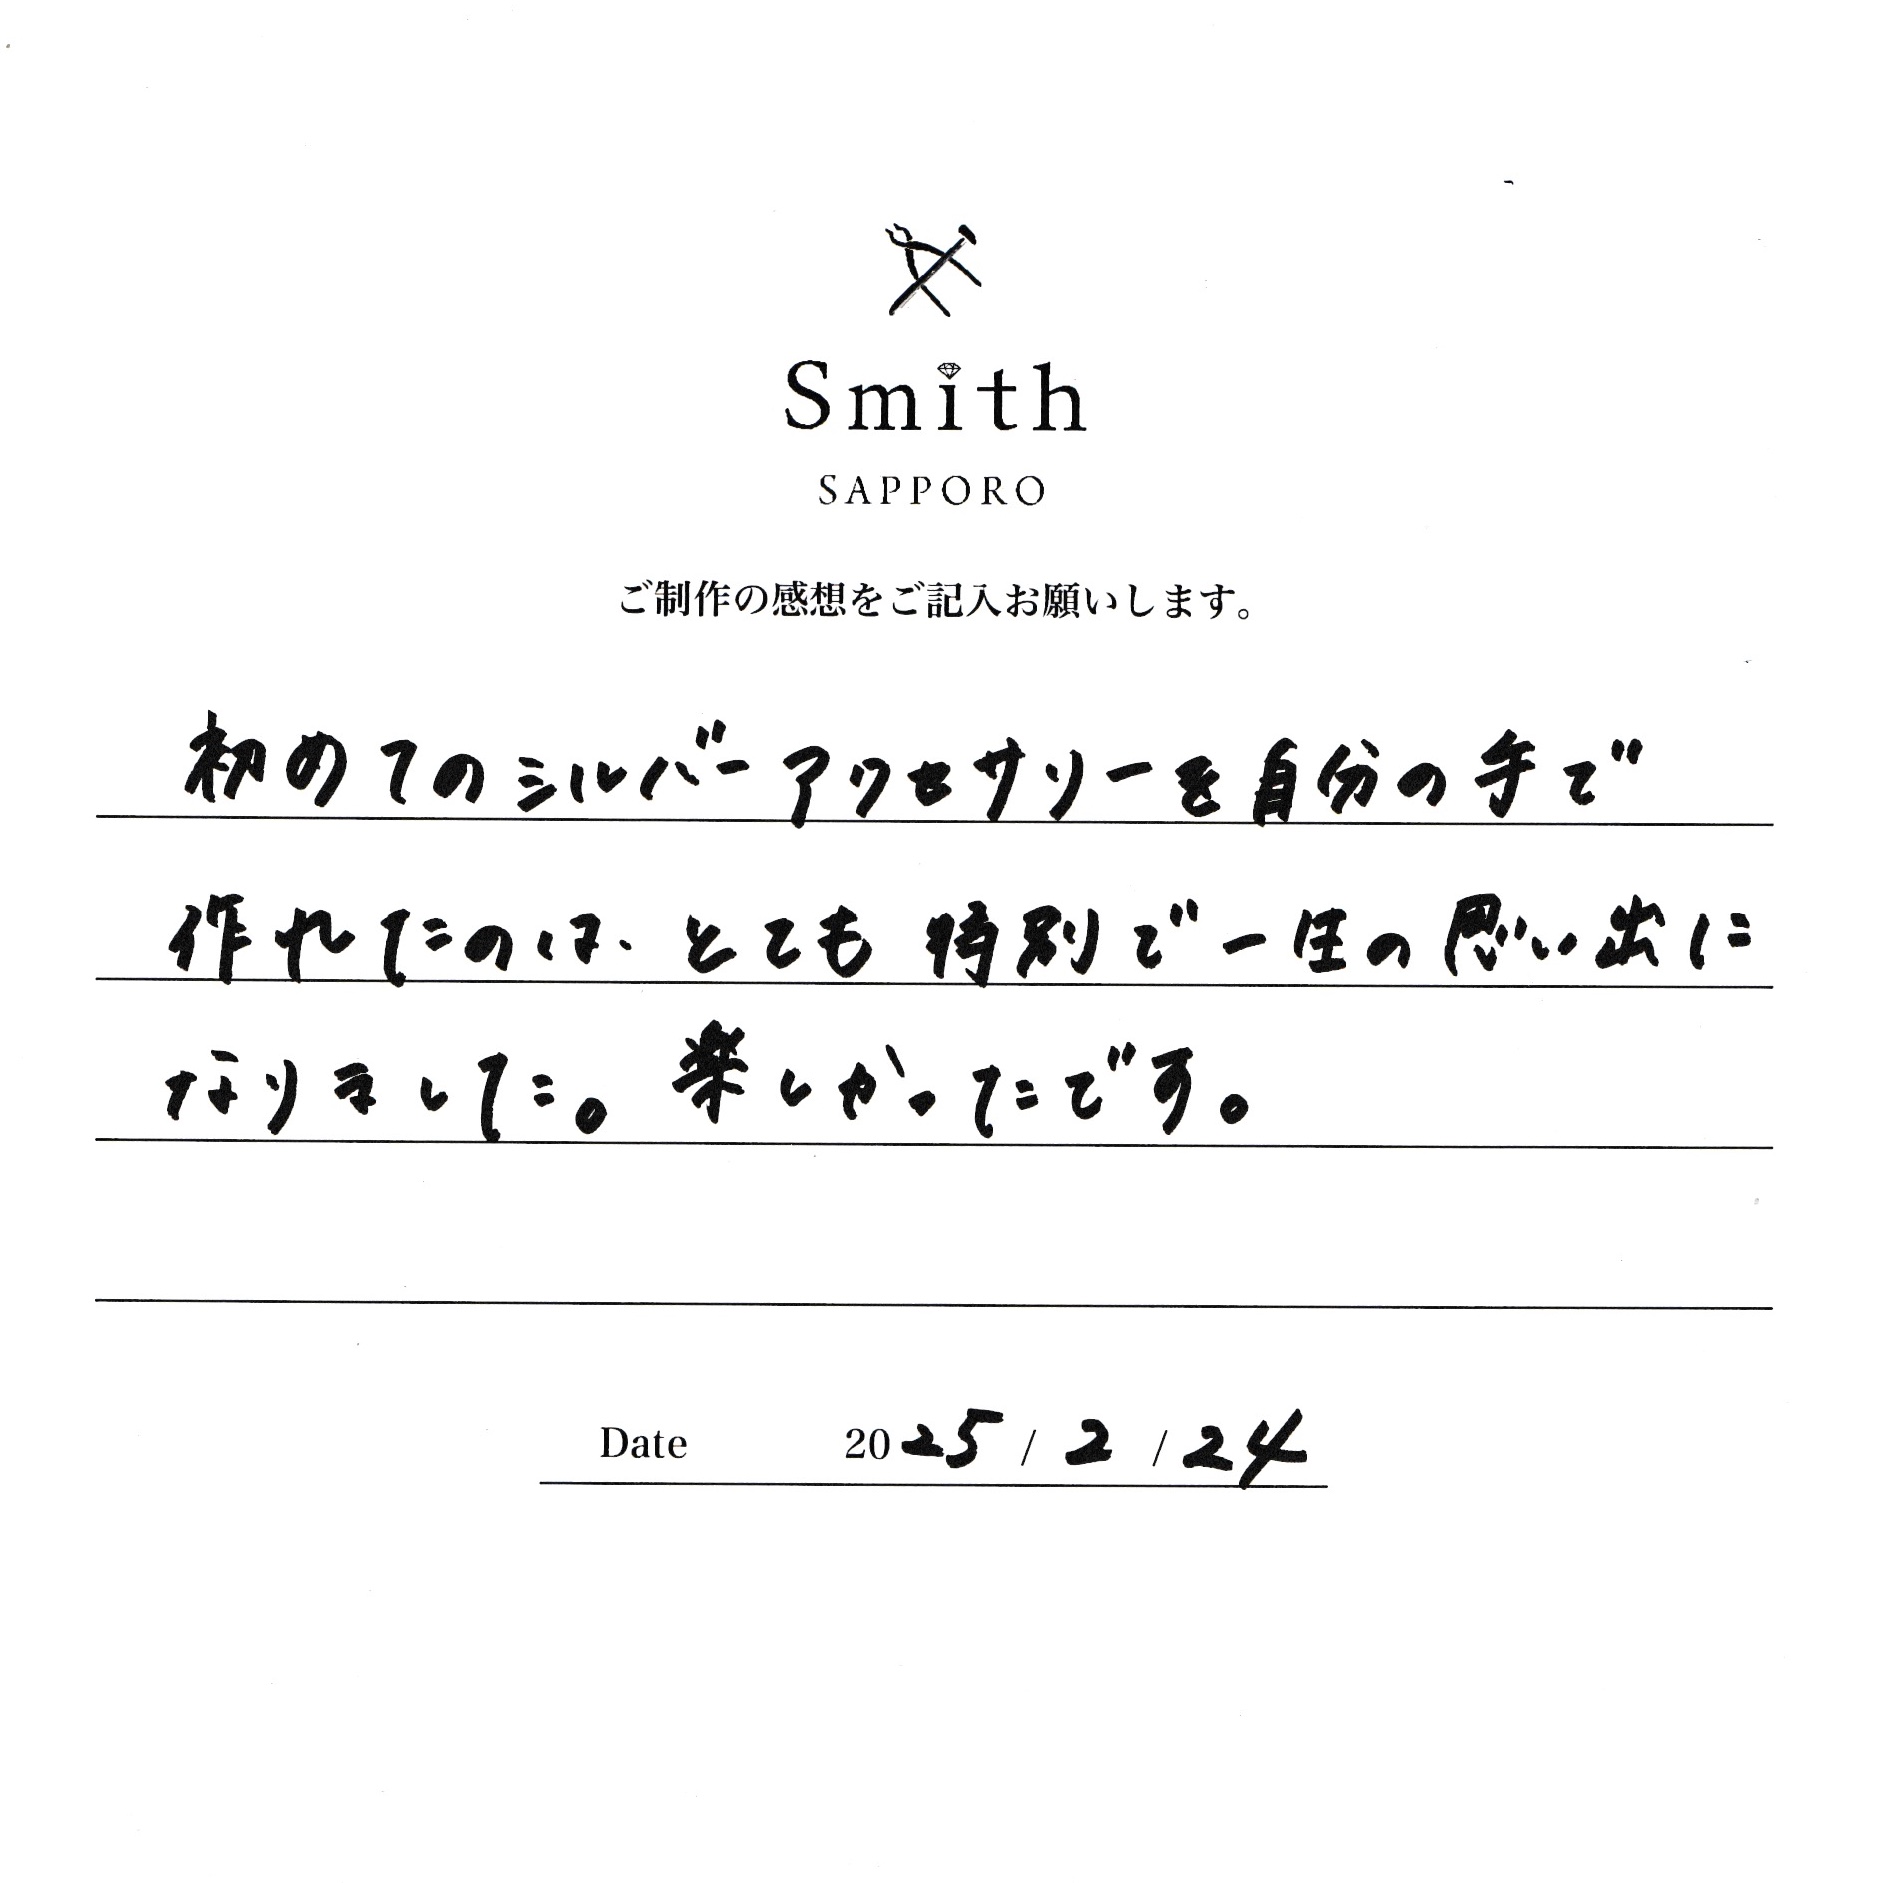 Smith
SAPPORO
ご制作の感想をご記入お願いします。
初めてのシルバーアクセサリーを自分の手で
作れたのは、とても特別で一生の思い出に
なりました。楽しかったです。
Date 2025 / 2 / 24